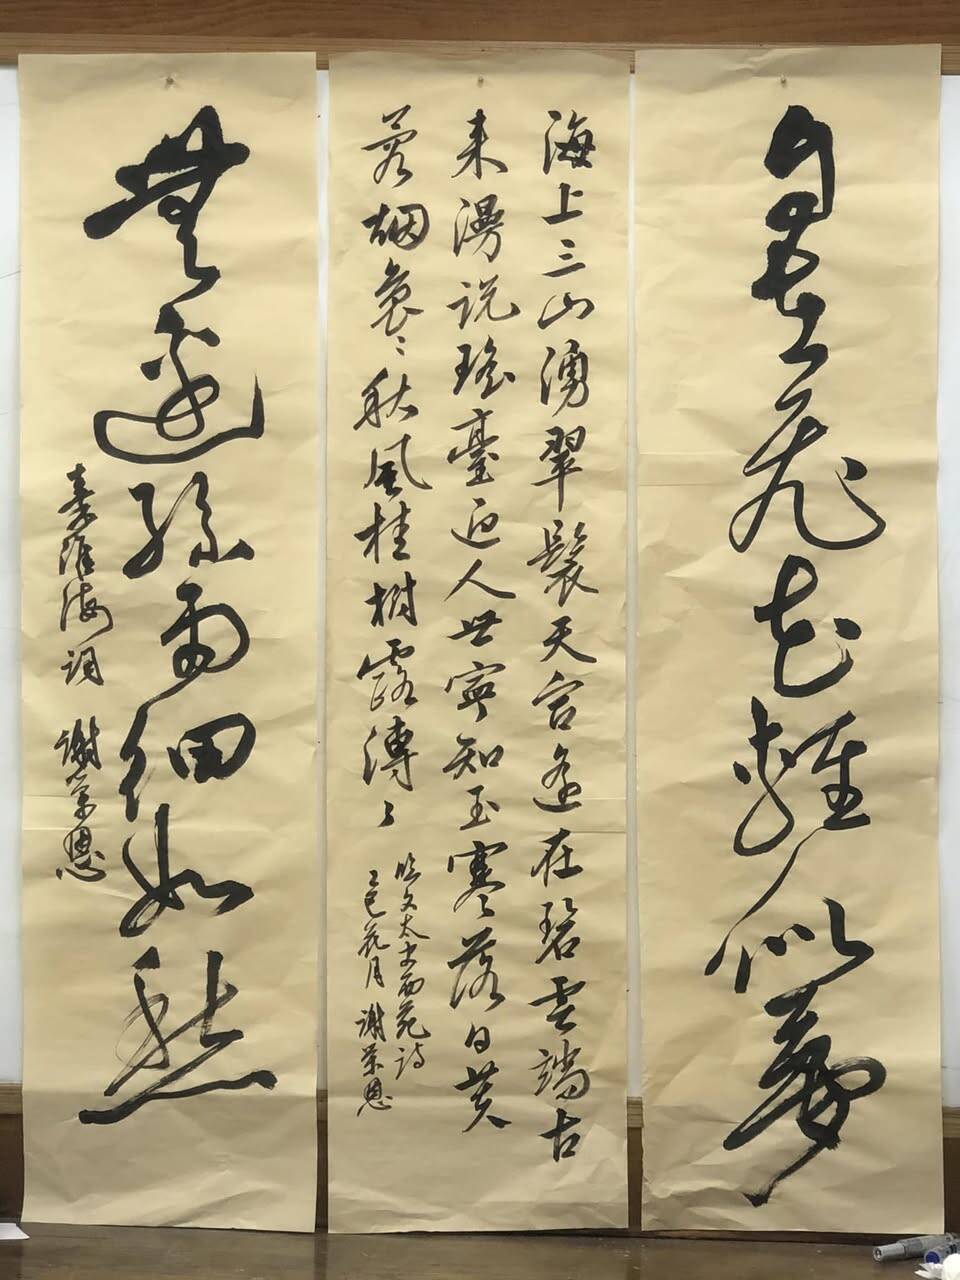 自在飛花輕似夢
海上三山湧翠鬟天宮遙在碧雲端古
來漫說瑤臺迥人世寧知玉寒落日芙
蓉烟裊〻秋風桂樹露漙〻
明文太史西苑詩
乙巳花月 謝榮恩
無邊絲雨細如愁
秦淮海詞 謝榮恩